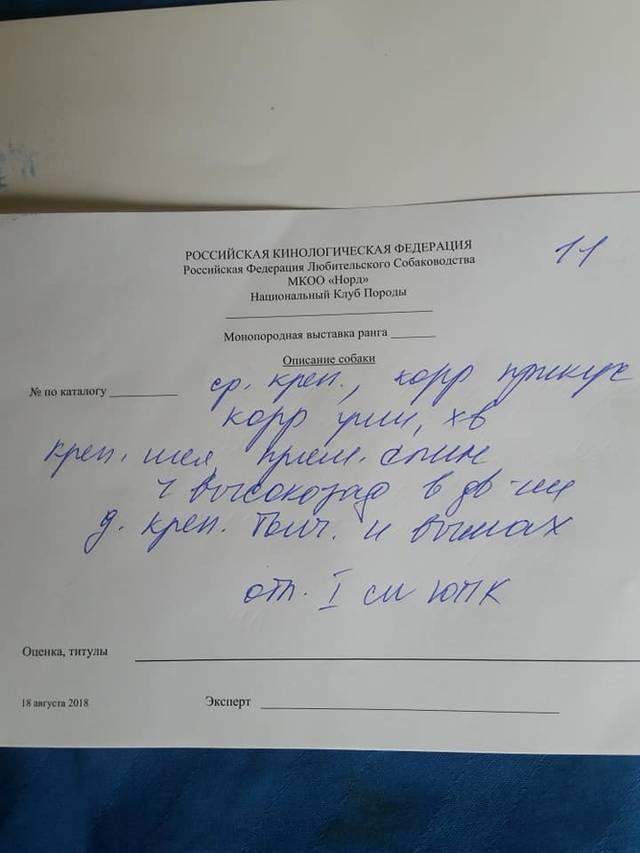 РОССИЙСКАЯ КИНОЛОГИЧЕСКАЯ ФЕДЕРАЦИЯ
11
Российская Федерация Любительского Собаководства
МКОО «Норд»
Национальный Клуб Породы
Монопородная выставка ранга
Описание собаки
№ по каталогу
ср. креп., корр прикус
корр уши, хв
креп. шея, прям. спин
ч высокозад в дв-ии
д. креп. Толч. и вымах
отл. I см ЮПК
Оценка, титулы
18 августа 2018
Эксперт